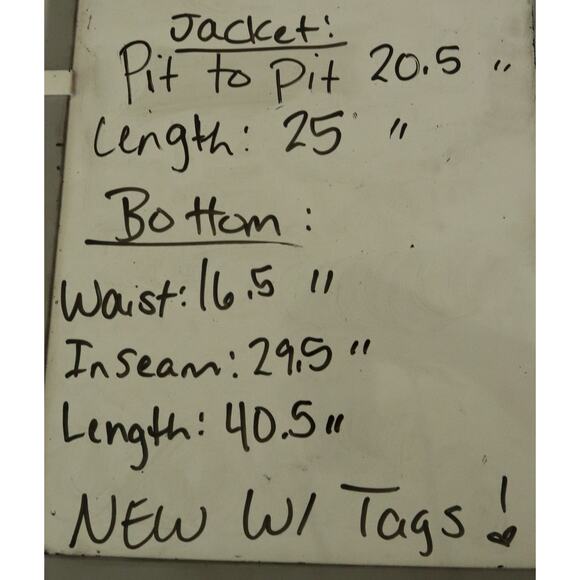 Jacket:
Pit to Pit 20.5 "
Length: 25 "
Bottom:
Waist: 16.5 "
Inseam: 29.5 "
Length: 40.5 "
NEW W/ Tags!